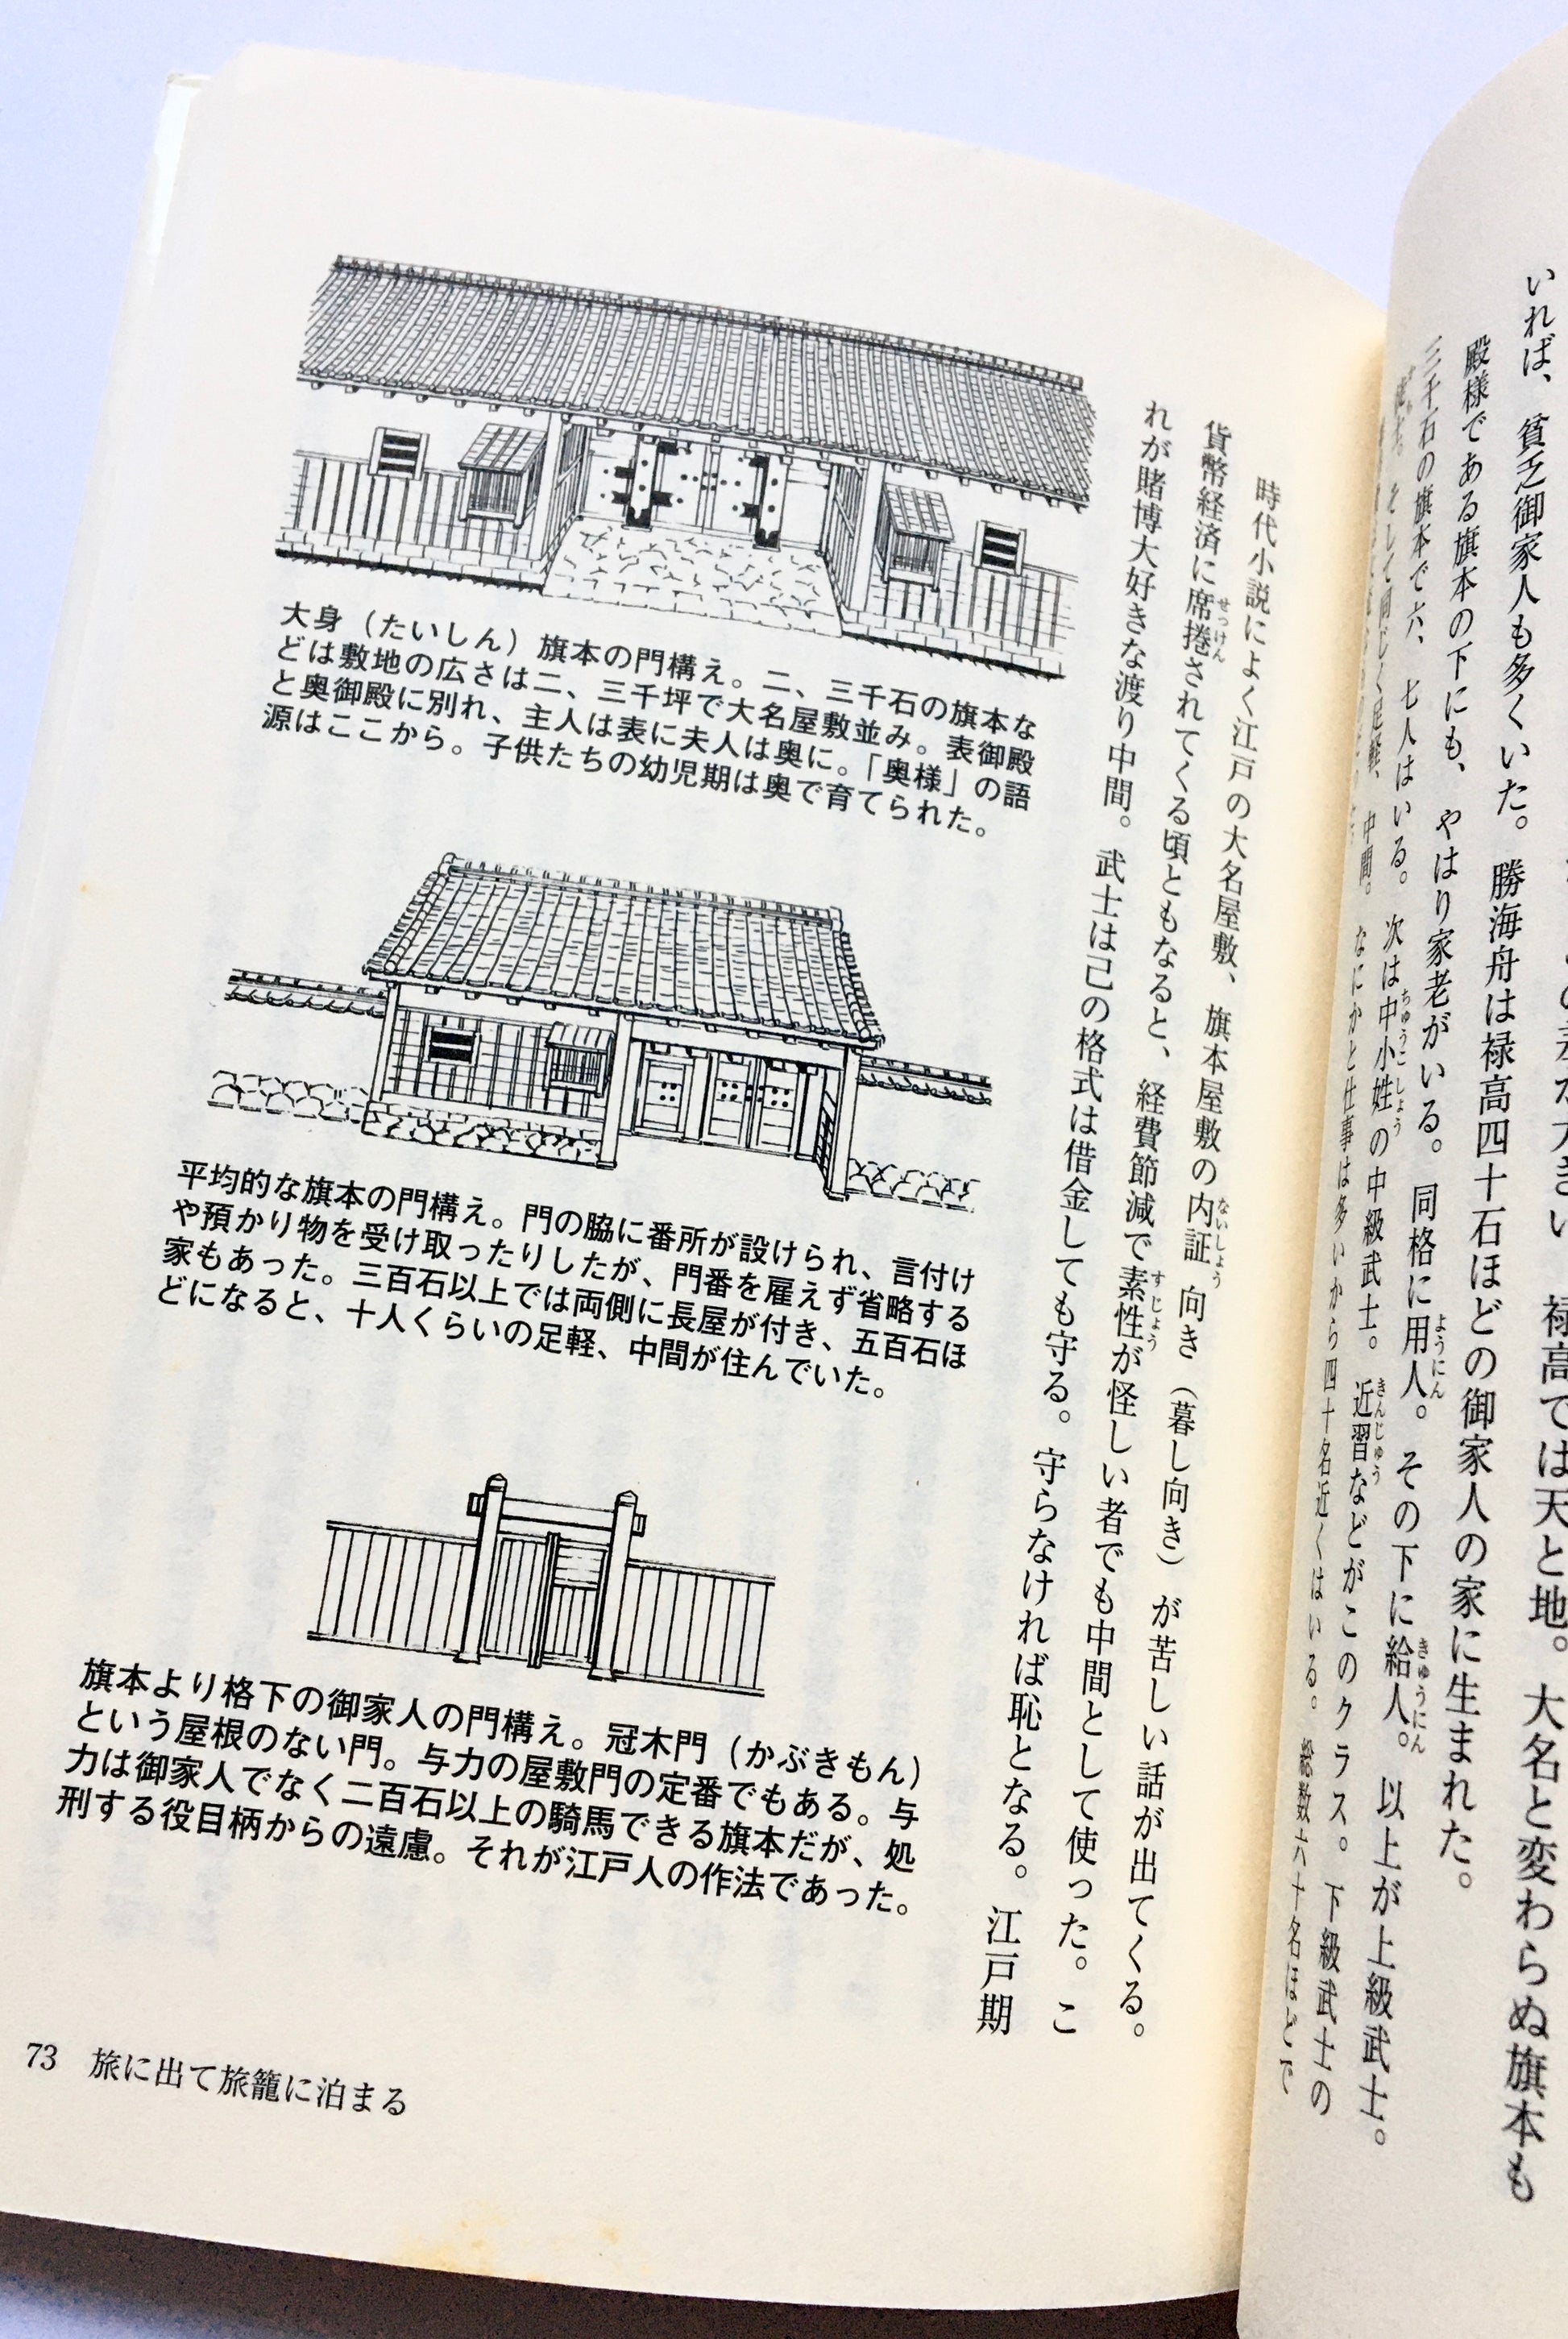 禄高では天と地。大名と変わらぬ旗本も
いれば、貧乏御家人も多くいた。勝海舟は禄高四十石ほどの御家人の家に生まれた。
殿様である旗本の下にも、やはり家老がいる。同格に用人。その下に給人。以上が上級武士。
三千石の旗本で六、七人はいる。次は中小姓の中級武士。近習などがこのクラス。下級武士の
そして同じく足軽、中間。なにかと仕事は多いから四十名近くはいる。総数六十名ほどで
時代小説によく江戸の大名屋敷、旗本屋敷の内証向き（暮し向き）が苦しい話が出てくる。
貨幣経済に席捲されてくる頃ともなると、経費節減で素性が怪しい者でも中間として使った。こ
れが賭博大好きな渡り中間。武士は己の格式は借金しても守る。守らなければ恥となる。江戸期
大身（たいしん）旗本の門構え。二、三千石の旗本な
どは敷地の広さは二、三千坪で大名屋敷並み。表御殿
と奥御殿に別れ、主人は表に夫人は奥に。「奥様」の語
源はここから。子供たちの幼児期は奥で育てられた。
平均的な旗本の門構え。門の脇に番所が設けられ、言付け
や預かり物を受け取ったりしたが、門番を雇えず省略する
家もあった。三百石以上では両側に長屋が付き、五百石ほ
どになると、十人くらいの足軽、中間が住んでいた。
旗本より格下の御家人の門構え。冠木門（かぶきもん）
という屋根のない門。与力の屋敷門の定番でもある。与
力は御家人でなく二百石以上の騎馬できる旗本だが、処
刑する役目柄からの遠慮。それが江戸人の作法であった。
73 旅に出て旅籠に泊まる